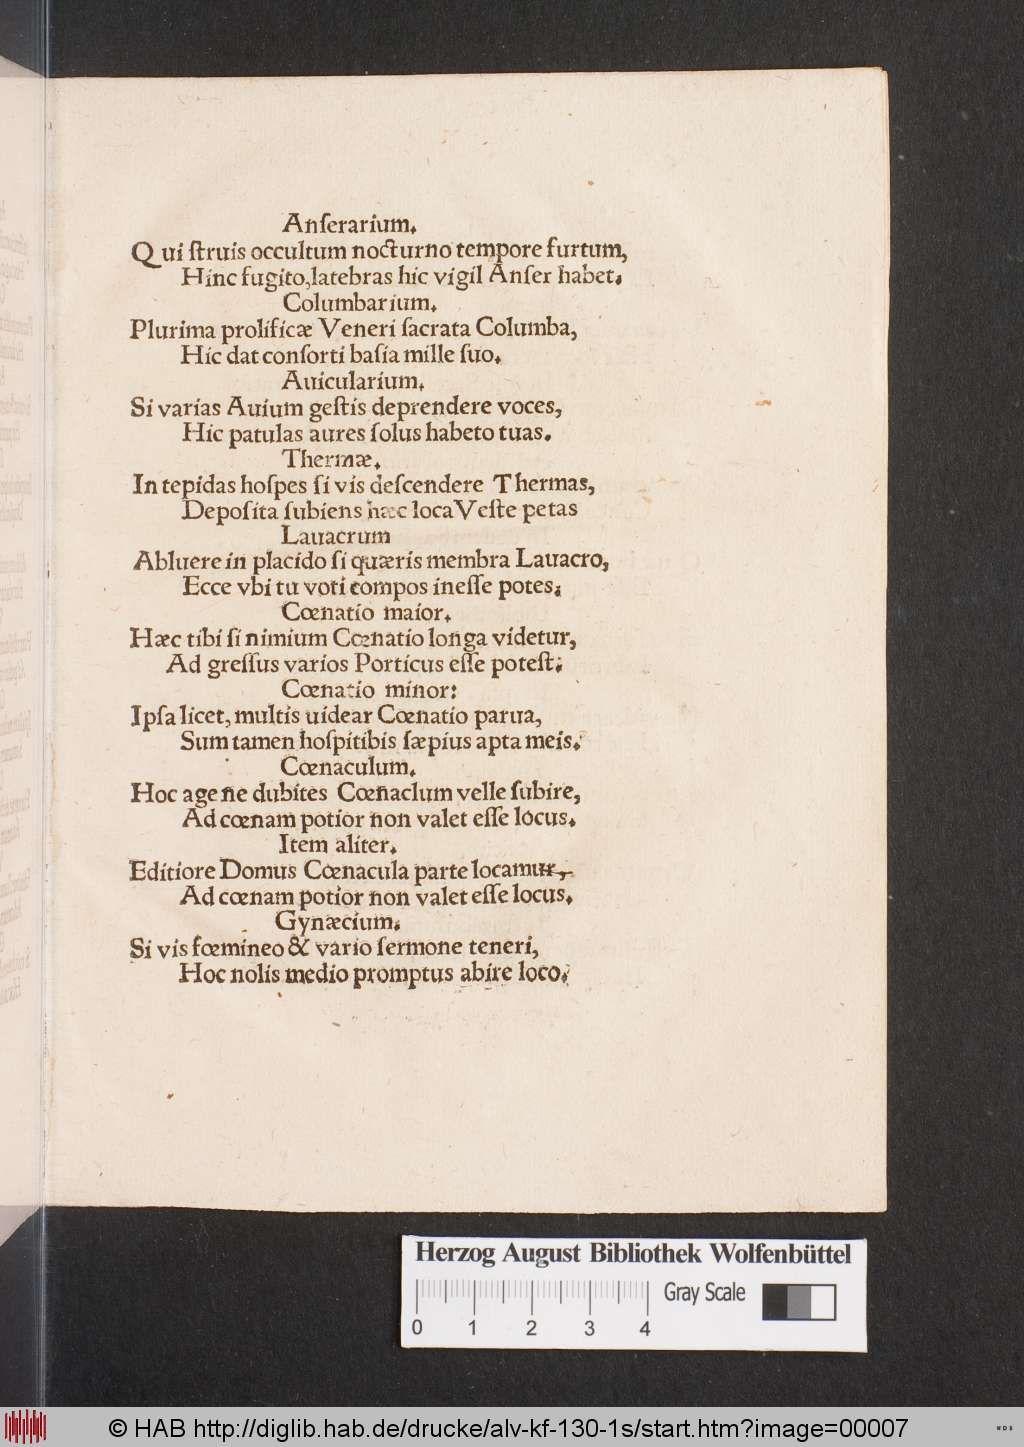 Anſerarium.
Qui ſtruis occultum nocturno tempore furtum,
Hinc fugito,latebras hic vigil Anſer habet.
Columbarium.
Plurima prolificæ Veneri ſacrata Columba,
Hic dat conſorti baſia mille ſuo.
Auicularium.
Si varias Auium geſtis deprendere voces,
Hic patulas aures ſolus habeto tuas.
Thermæ.
In tepidas hoſpes ſi vis deſcendere Thermas,
Depoſita ſubiens hæc loca Veſte petas
Lauacrum
Abluere in placido ſi quæris membra Lauacro,
Ecce vbi tu voti compos ineſſe potes;
Cœnatio maior.
Hæc tibi ſi nimium Cœnatio longa videtur,
Ad greſſus varios Porticus eſſe poteſt;
Cœnatio minor:
Ipſa licet, multis uidear Cœnatio parua,
Sum tamen hoſpitibis ſæpius apta meis.
Cœnaculum.
Hoc age ne dubites Cœnaclum velle ſubire,
Ad cœnam potior non valet eſſe locus.
Item aliter.
Editiore Domus Cœnacula parte locamur,
Ad cœnam potior non valet eſſe locus.
Gynæcium.
Si vis fœmineo & vario ſermone teneri,
Hoc nolis medio promptus abire loco.
Herzog August Bibliothek Wolfenbüttel
Gray Scale
0 1 2 3 4
© HAB http://diglib.hab.de/drucke/alv-kf-130-1s/start.htm?image=00007